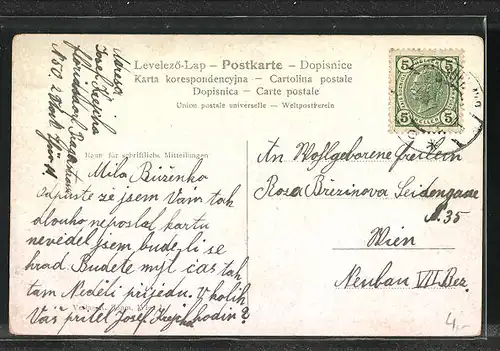 Levelező-Lap — Postkarte — Dopisnice
Karta korespondencyjna — Cartolina postale
Dopisnica — Carte postale
Union postale universelle — Weltpostverein
Adresa
Josef Krejcha
N 50. 2 Stock Thür 11
Raum für schriftliche Mitteilungen
Mila Būženko
odpuste ze jsem Vam tak
dlouho neposlal kartu
nevidel jsem bude-li se
hrad Budete mýt čas tak
tam Neděli prijedu. V kolik
Váš pritel Josef Krejcha hodin?
An Wohlgeborene Freilein
Rosa Brezinova Seidengasse
N. 35
Wien
Neubau VII Bez.
5 5
5 5
4,-